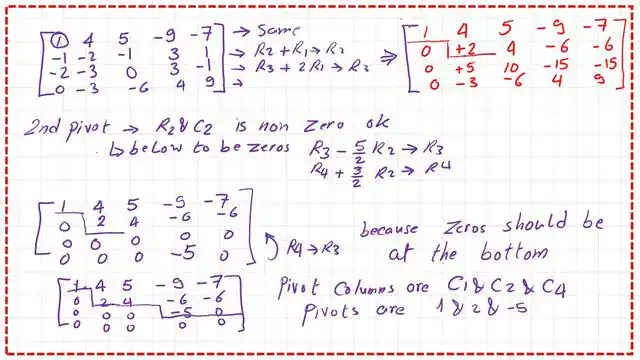 [① 4 5 -9 -7] → Same [1 4 5 -9 -7]
[-1 -2 -1 3 1] → R2 + R1 → R2 ⇒ [0 +2 4 -6 -6]
[-2 -3 0 3 -1] → R3 + 2R1 → R3 [0 +5 10 -15 -15]
[0 -3 -6 4 9] → [0 -3 -6 4 9]
2nd pivot → R2 & C2 is non Zero ok
↳ below to be zeros R3 - 5/2 R2 → R3
R4 + 3/2 R2 → R4
[1 4 5 -9 -7]
[0 2 4 -6 -6]
[0 0 0 0 0]
[0 0 0 -5 0]
R4 → R3
because Zeros should be
at the bottom
[1 4 5 -9 -7]
[0 2 4 -6 -6]
[0 0 0 -5 0]
[0 0 0 0 0]
Pivot Columns are C1 & C2 & C4
Pivots are 1 & 2 & -5